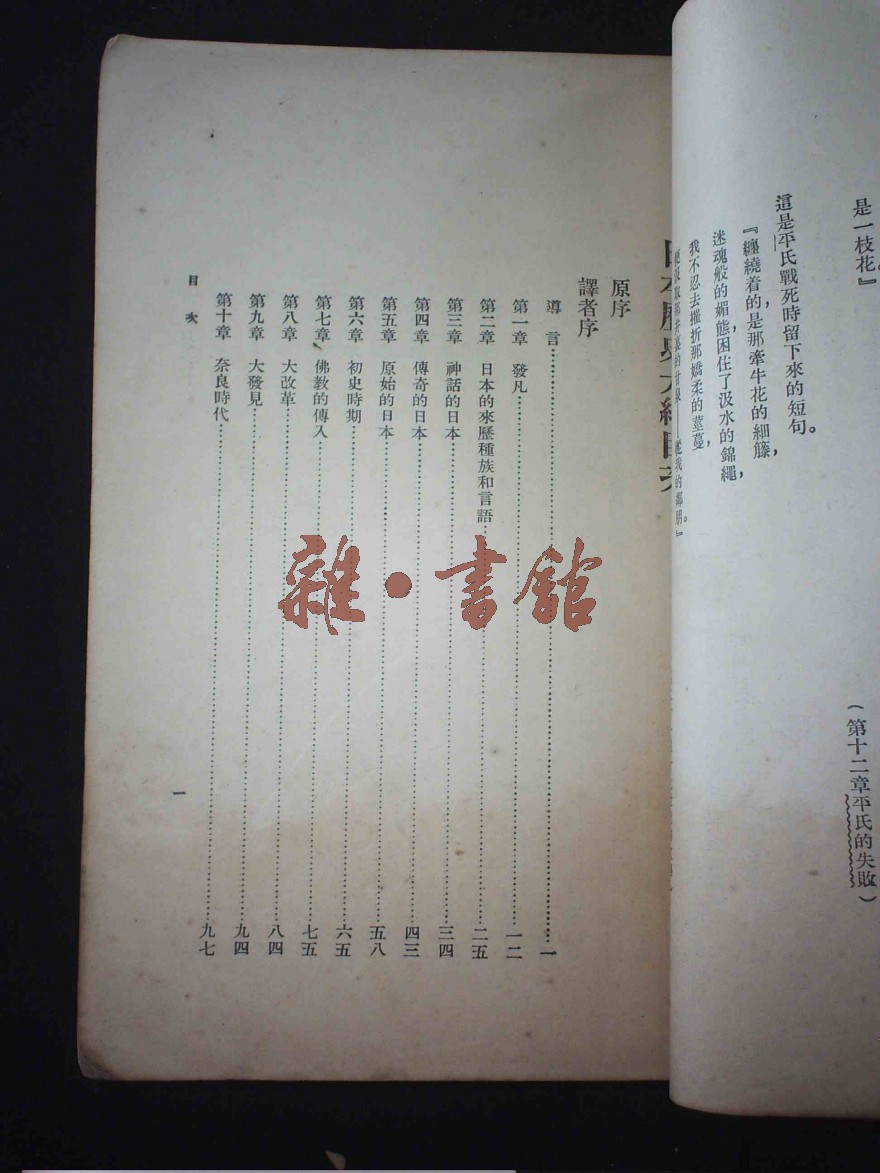 是一枝花。』
這是平氏戰死時留下來的短句。
『纏繞着的,是那牽牛花的細籐,
迷魂般的媚態,困住了汲水的錦繩,
我不忍去摧折那嬌柔的莖蔓,
(第十二章平氏的失敗)
原序
譯者序
導言 一
第一章 發凡 一二
第二章 日本的來歷種族和言語 二五
第三章 神話的日本 三四
第四章 傳奇的日本 四三
第五章 原始的日本 五八
第六章 初史時期 六五
第七章 佛教的傳入 七五
第八章 大改革 八四
第九章 大發見 九四
第十章 奈良時代 九七
目次
一
雜·書館